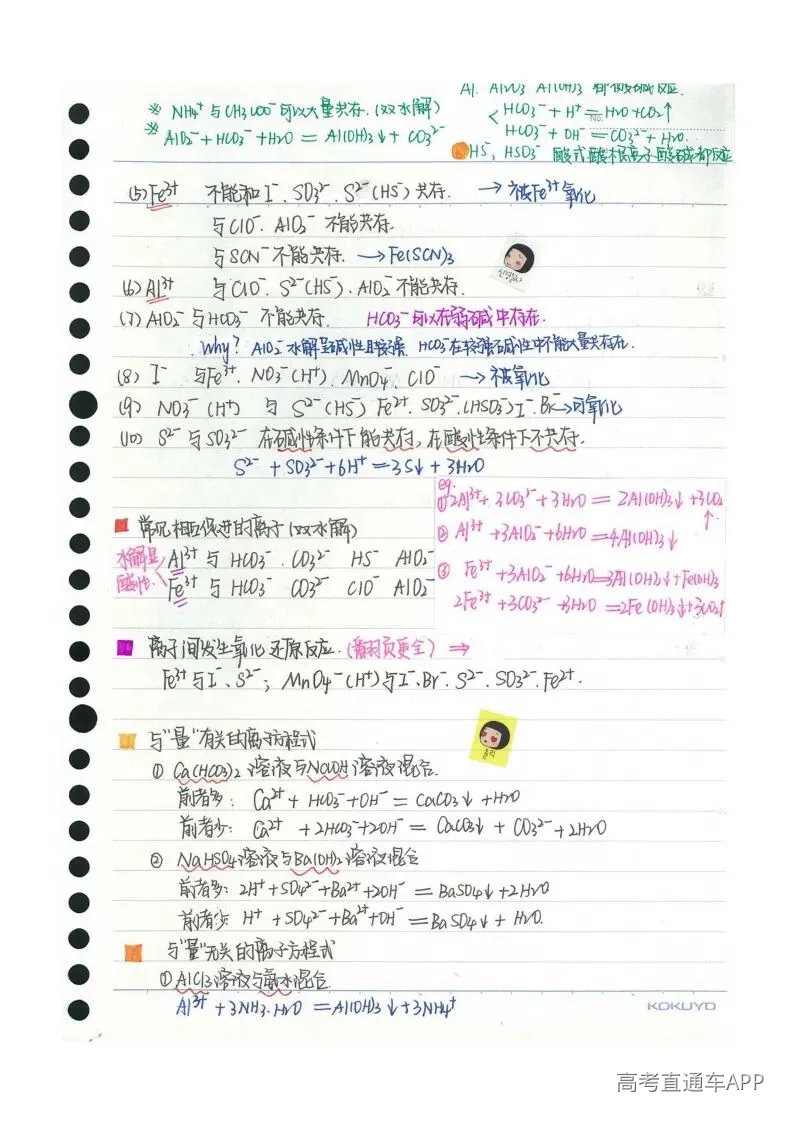 Al. Al2O3 Al(OH)3 都与酸碱反应.
※ NH4⁺ 与 CH3COO⁻ 可以大量共存. (双水解)
HCO3⁻ + H⁺ = H2O + CO2↑
※ AlO2⁻ + HCO3⁻ + H2O = Al(OH)3↓ + CO3²⁻
HCO3⁻ + OH⁻ = CO3²⁻ + H2O.
HS⁻, HSO3⁻ 酸式酸根离子酸碱都反应
(5) Fe³⁺ 不能和 I⁻. SO3²⁻. S²⁻(HS⁻) 共存. → 被Fe³⁺氧化
与ClO⁻. AlO2⁻ 不能共存.
与SCN⁻不能共存. → Fe(SCN)3
(6) Al³⁺ 与ClO⁻. S²⁻(HS⁻). AlO2⁻不能共存.
(7) AlO2⁻ 与HCO3⁻ 不能共存. HCO3⁻可以在弱碱中存在.
Why? AlO2⁻水解呈碱性且较强. HCO3⁻在较强碱性中不能大量共存在.
(8) I⁻ 与Fe³⁺. NO3⁻(H⁺). MnO4⁻. ClO⁻ → 被氧化
(9) NO3⁻(H⁺) 与 S²⁻(HS⁻) Fe²⁺. SO3²⁻.(HSO3⁻) I⁻. Br⁻ → 可氧化
(10) S²⁻与SO3²⁻ 在碱性条件下能共存, 在酸性条件下不共存.
S²⁻ + SO3²⁻ + 6H⁺ = 3S↓ + 3H2O
eg:
① 2Al³⁺ + 3CO3²⁻ + 3H2O = 2Al(OH)3↓ + 3CO2↑
常见相互促进的离子 (双水解)
② Al³⁺ + 3AlO2⁻ + 6H2O = 4Al(OH)3↓
水解显酸性. Al³⁺ 与 HCO3⁻. CO3²⁻ HS⁻ AlO2⁻
Fe³⁺ 与 HCO3⁻ CO3²⁻ ClO⁻ AlO2⁻
③ Fe³⁺ + 3AlO2⁻ + 6H2O = 3Al(OH)3↓ + Fe(OH)3
2Fe³⁺ + 3CO3²⁻ + 3H2O = 2Fe(OH)3↓ + 3CO2↑
离子间发生氧化还原反应. (翻到页更全) ⇒
Fe³⁺与I⁻. S²⁻; MnO4⁻(H⁺)与I⁻. Br⁻. S²⁻. SO3²⁻. Fe²⁺.
与"量"有关的离子方程式
① Ca(HCO3)2 溶液与NaOH溶液混合.
前者多: Ca²⁺ + HCO3⁻ + OH⁻ = CaCO3↓ + H2O
前者少: Ca²⁺ + 2HCO3⁻ + 2OH⁻ = CaCO3↓ + CO3²⁻ + 2H2O
② NaHSO4溶液与Ba(OH)2溶液混合
前者多: 2H⁺ + SO4²⁻ + Ba²⁺ + 2OH⁻ = BaSO4↓ + 2H2O
前者少: H⁺ + SO4²⁻ + Ba²⁺ + OH⁻ = BaSO4↓ + H2O.
与"量"无关的离子方程式
① AlCl3溶液与氨水混合.
Al³⁺ + 3NH3·H2O = Al(OH)3↓ + 3NH4⁺
KOKUYO
高考直通车APP